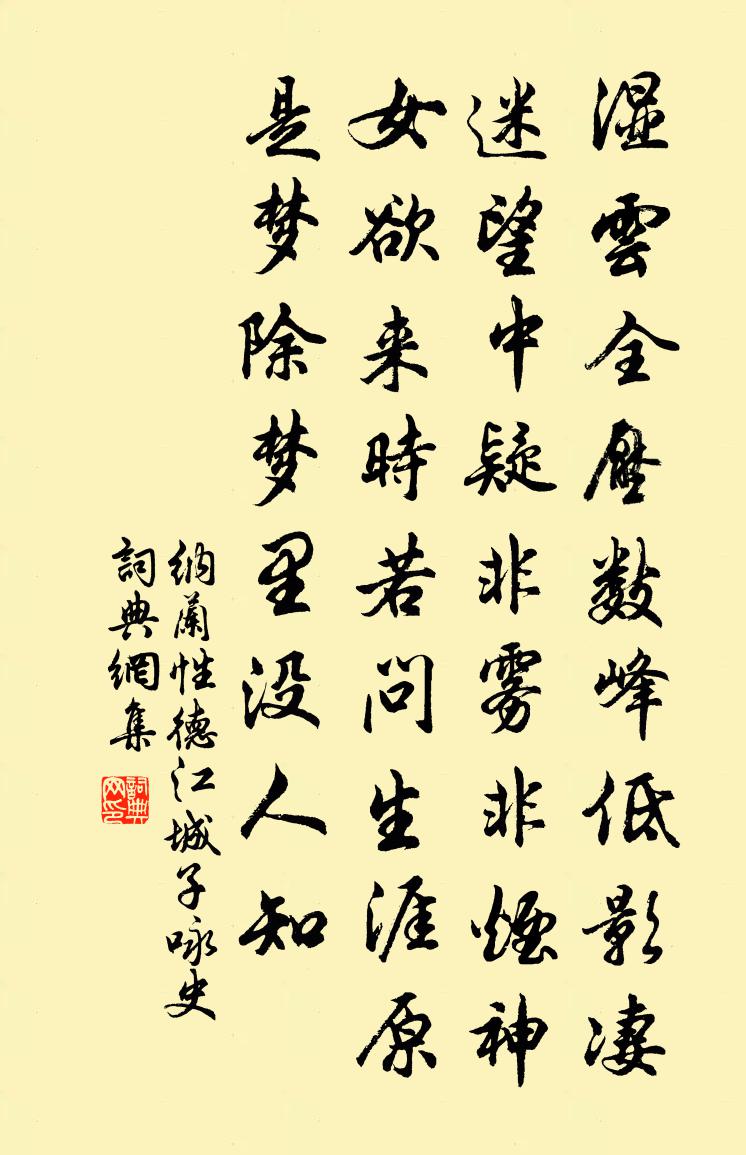 湿雲全壓数峰低影凄
迷望中疑非雾非煙神
女欲来時若问生涯原
是梦除梦里没人知
纳蘭性德江城子咏史
詞典網集
詞典网印